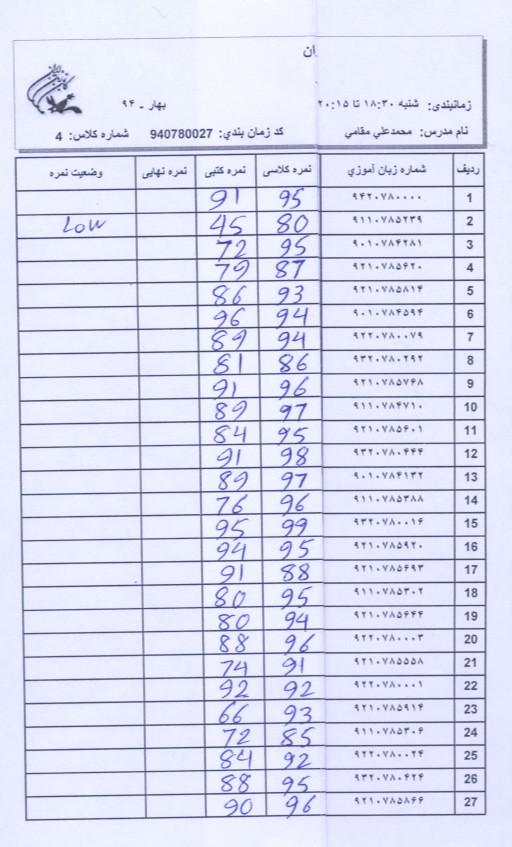 ان
زمانبندی: شنبه ۱۸:۳۰ تا ۲۰:۱۵ بهار - ۹۴
نام مدرس: محمدعلي مقامي کد زمان بندي: 940780027 شماره کلاس: 4
ردیف شماره زبان آموزي نمره کلاسی نمره کتبی نمره نهایی وضعیت نمره
1 ۹۴۲۰۷۸۰۰۰۰ 95 91
2 ۹۱۱۰۷۸۵۲۳۹ 80 45 Low
3 ۹۰۱۰۷۸۴۲۸۱ 95 72
4 ۹۲۱۰۷۸۵۶۲۰ 87 79
5 ۹۲۱۰۷۸۵۸۱۴ 93 86
6 ۹۰۱۰۷۸۴۵۹۴ 94 96
7 ۹۲۲۰۷۸۰۰۷۹ 94 89
8 ۹۳۲۰۷۸۰۲۹۲ 86 81
9 ۹۲۱۰۷۸۵۷۶۸ 96 91
10 ۹۱۱۰۷۸۴۷۱۰ 97 89
11 ۹۲۱۰۷۸۵۶۰۱ 95 84
12 ۹۳۲۰۷۸۰۴۴۴ 98 91
13 ۹۰۱۰۷۸۴۱۳۲ 97 89
14 ۹۱۱۰۷۸۵۳۸۸ 96 76
15 ۹۳۲۰۷۸۰۰۱۶ 99 95
16 ۹۲۱۰۷۸۵۹۲۰ 95 94
17 ۹۲۱۰۷۸۵۶۹۳ 88 91
18 ۹۱۱۰۷۸۵۳۰۲ 95 80
19 ۹۲۱۰۷۸۵۶۴۴ 94 80
20 ۹۲۲۰۷۸۰۰۰۳ 96 88
21 ۹۲۱۰۷۸۵۵۵۸ 91 74
22 ۹۲۲۰۷۸۰۰۰۱ 92 92
23 ۹۲۱۰۷۸۵۹۱۴ 93 66
24 ۹۱۱۰۷۸۵۳۰۶ 85 72
25 ۹۲۲۰۷۸۰۰۲۴ 92 84
26 ۹۳۲۰۷۸۰۴۲۴ 95 88
27 ۹۲۱۰۷۸۵۸۶۶ 96 90